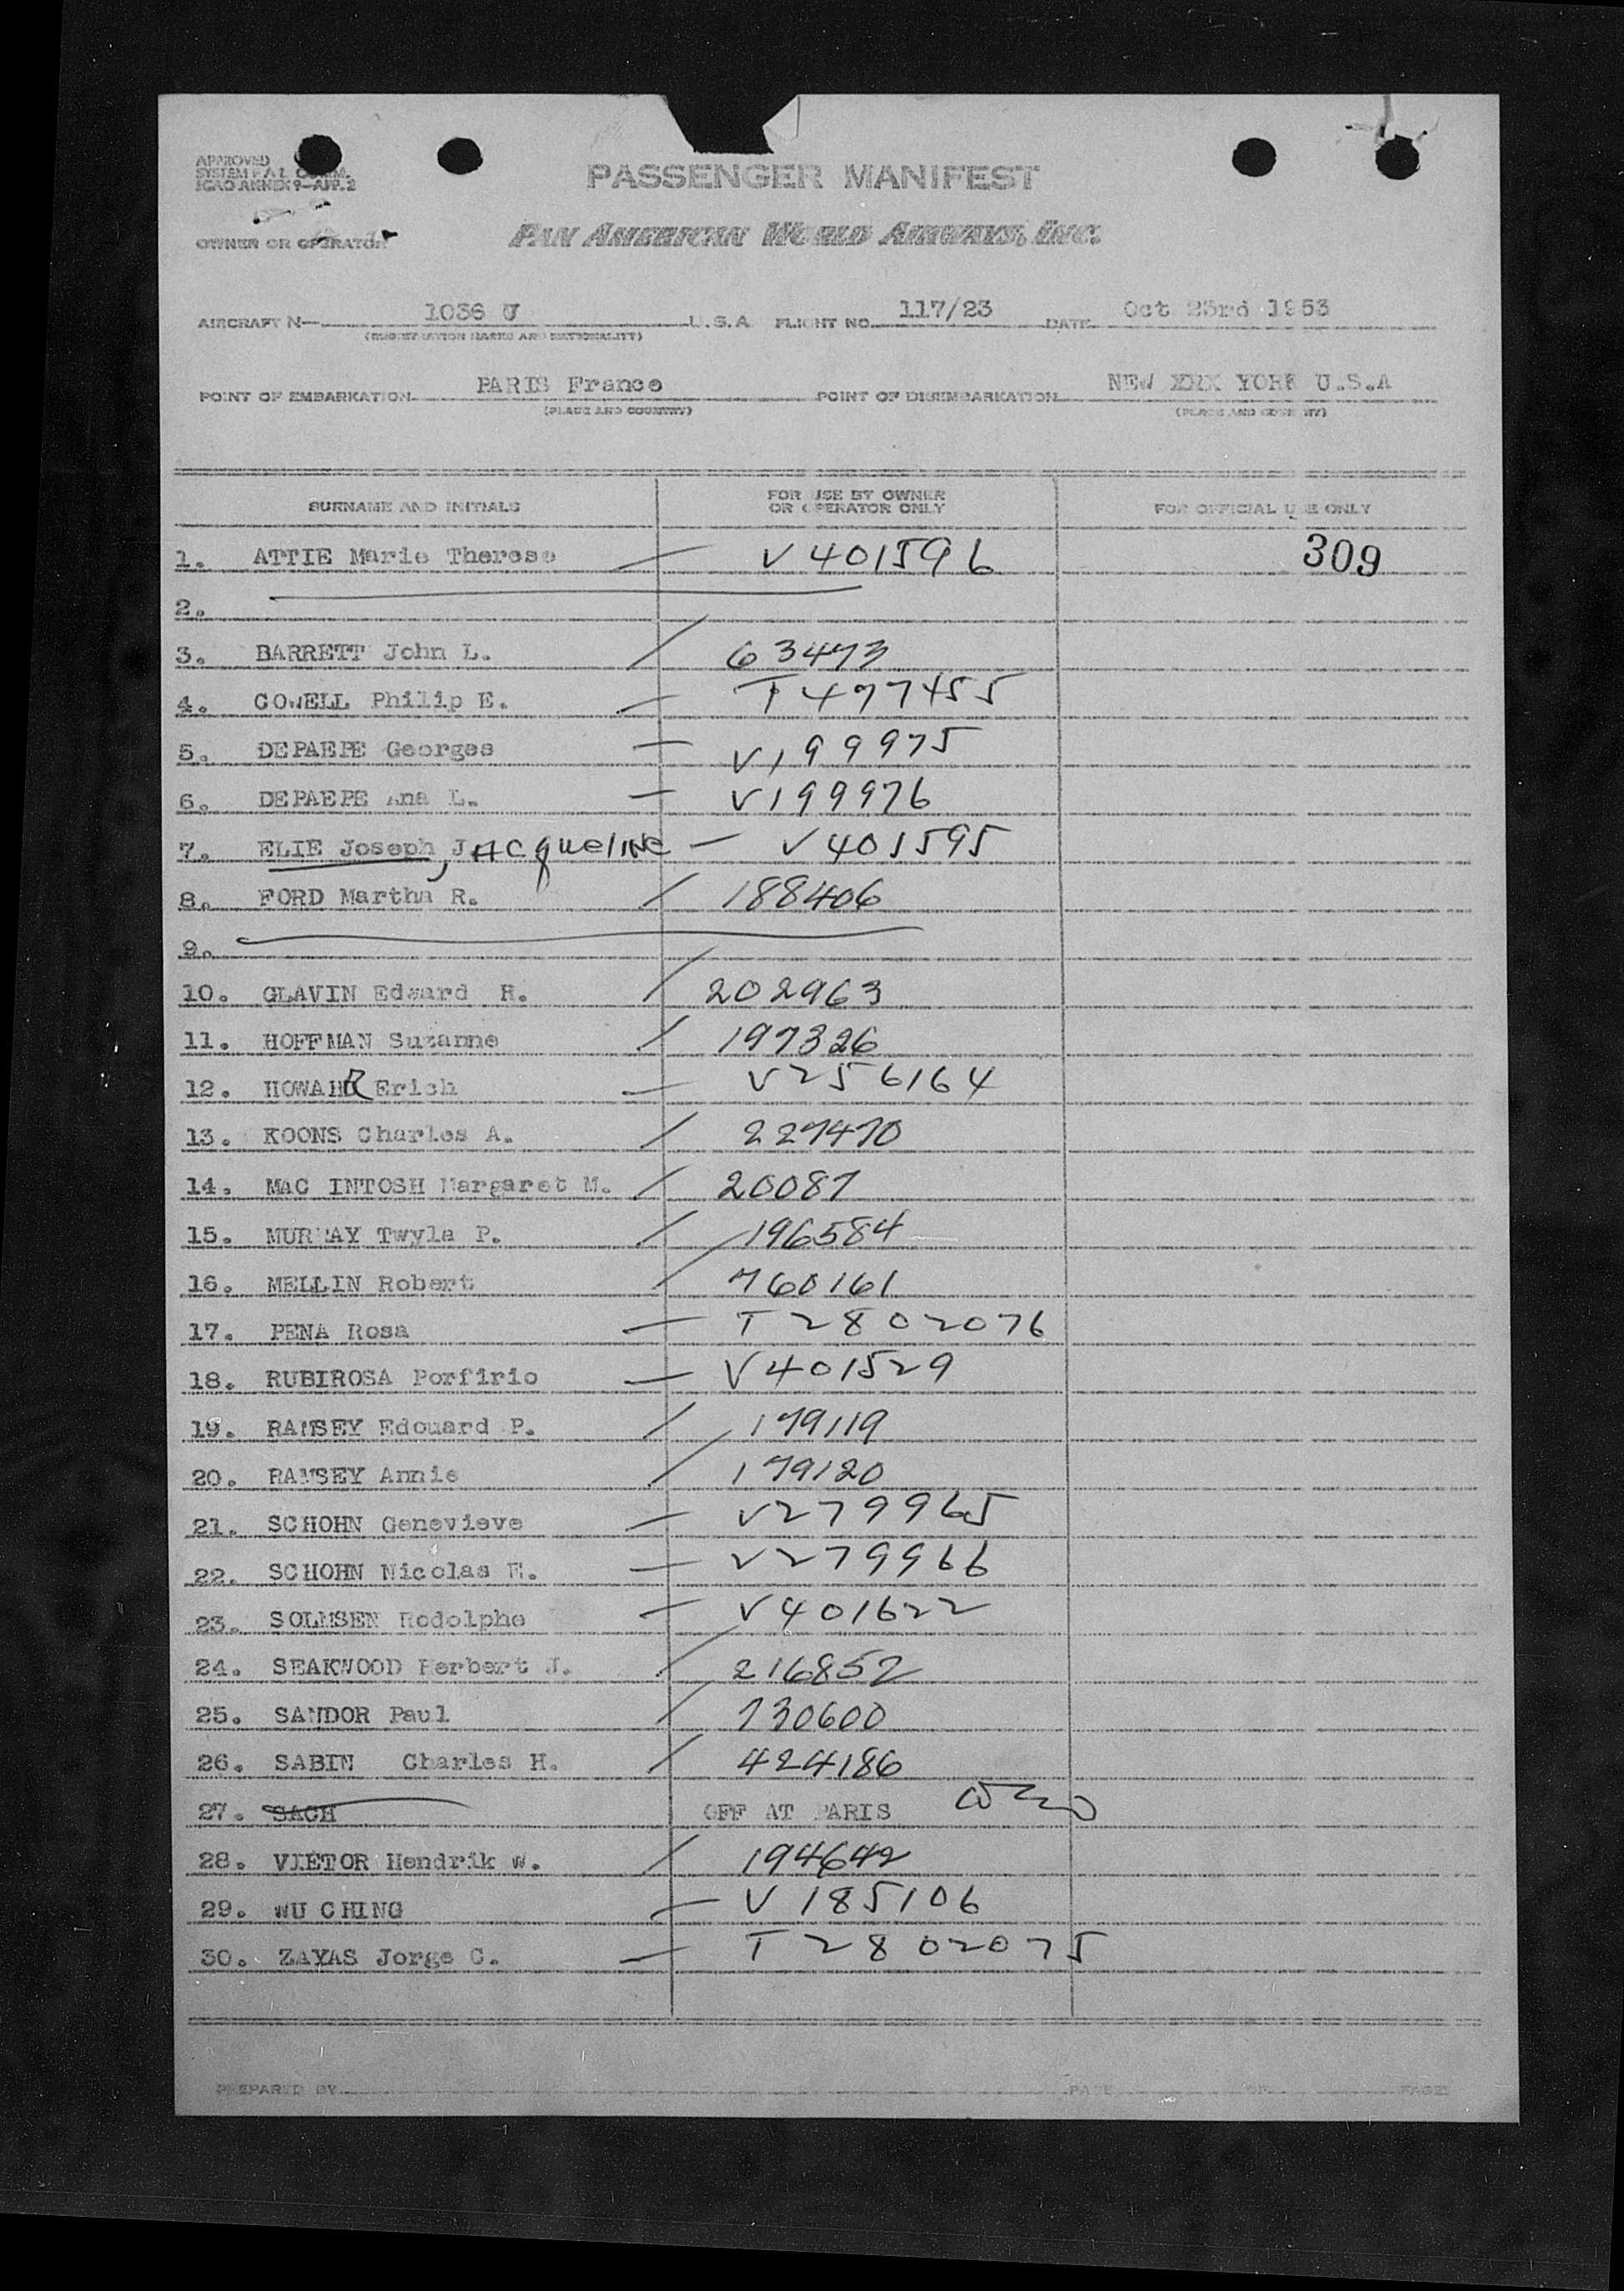 APPROVED
SYSTEM F A L COMM.
ICAO ANNEX 9—APP. 2
PASSENGER MANIFEST
OWNER OR OPERATOR
PAN AMERICAN WORLD AIRWAYS, INC.
AIRCRAFT N— 1036 U U.S.A FLIGHT NO. 117/23 DATE Oct 23rd 1953
(REGISTRATION MARKS AND NATIONALITY)
POINT OF EMBARKATION PARIS France POINT OF DISEMBARKATION NEW XRK YORK U.S.A
(PLACE AND COUNTRY) (PLACE AND COUNTRY)
SURNAME AND INITIALS FOR USE BY OWNER OR OPERATOR ONLY FOR OFFICIAL USE ONLY
1. ATTIE Marie Therese — V401596 309
2.
3. BARRETT John L. / 63473
4. COWELL Philip E. — T477455
5. DEPAEPE Georges — V199975
6. DEPAEPE Ana L. — V199976
7. ELIE Joseph, JACqueliNe — V401595
8. FORD Martha R. / 188406
9.
10. GLAVIN Edward H. / 202963
11. HOFFMAN Suzanne / 197326
12. HOWARD Erich — V256164
13. KOONS Charles A. / 227470
14. MAC INTOSH Margaret M. / 20087
15. MURRAY Twyla P. / 196584
16. MELLIN Robert / 760161
17. PENA Rosa — T2802076
18. RUBIROSA Porfirio — V401529
19. RAMSEY Edouard P. / 179119
20. RAMSEY Annie / 179120
21. SCHOHN Genevieve — V279965
22. SCHOHN Nicolas E. — V279966
23. SOLMSEN Rodolphe — V401622
24. SEAKWOOD Herbert J. / 216852
25. SANDOR Paul / 730600
26. SABIN Charles H. / 424186
27. SACH OFF AT PARIS
28. VIETOR Hendrik W. / 194642
29. WU CHING — V185106
30. ZAYAS Jorge C. — T2802075
PREPARED BY PAGE OF PAGES